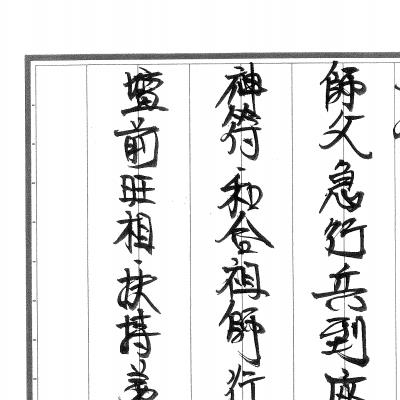 師父急行兵到座
神符和合祖師行
壇前旺相扶持弟